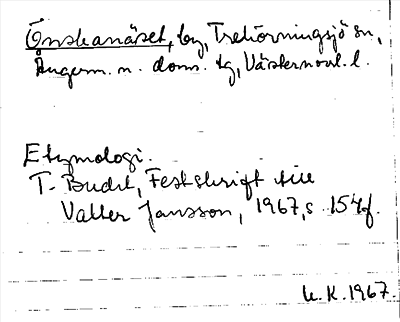 Önskanäset, by, Trehörningsjö sn,
Ångerm. n. doms. tg, Västernorrl. l.
Etymologi.
T. Bucht, Festskrift till
Valter Jansson, 1967, s. 154f.
U.K. 1967.